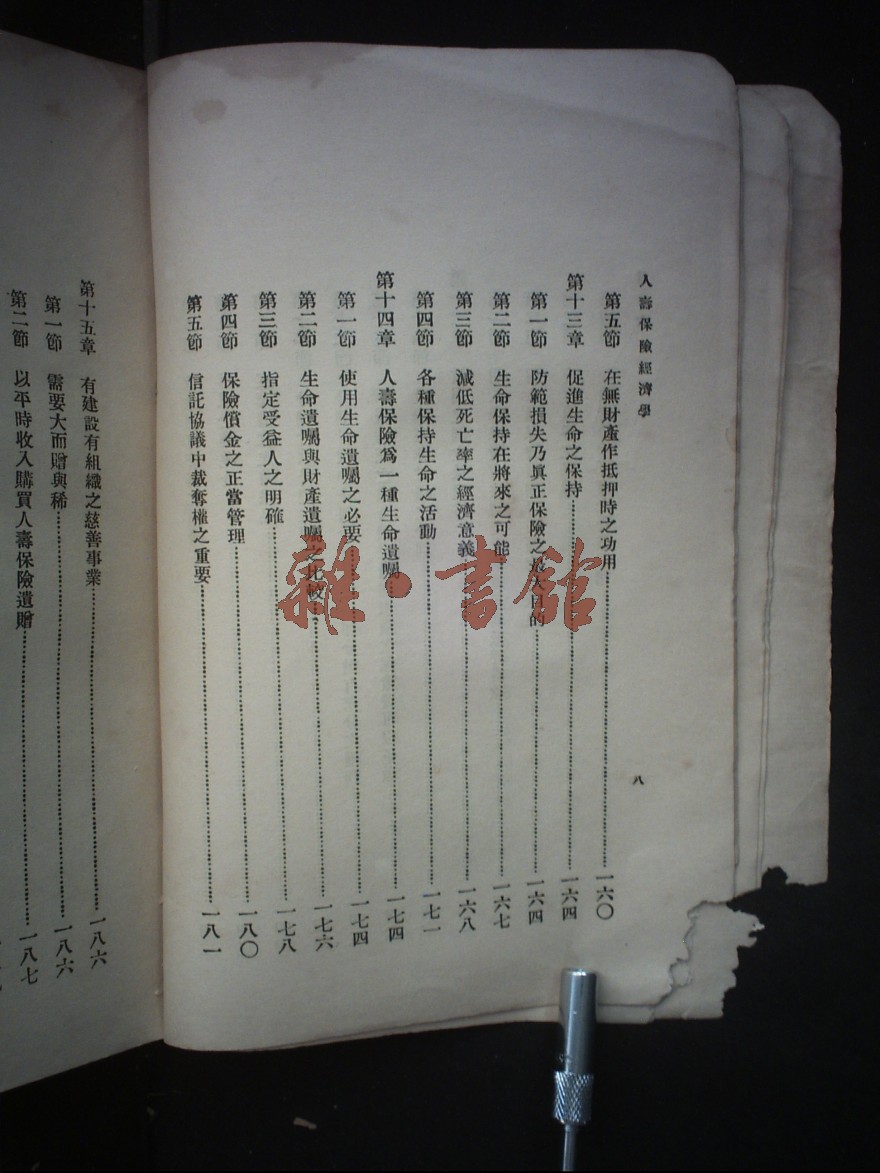 人壽保險經濟學
八
第五節　在無財產作抵押時之功用……一六〇
第十三章　促進生命之保持……一六四
第一節　防範損失乃眞正保險之最大目的……一六四
第二節　生命保持在將來之可能……一六七
第三節　減低死亡率之經濟意義……一六八
第四節　各種保持生命之活動……一七一
第十四章　人壽保險爲一種生命遺囑……一七四
第一節　使用生命遺囑之必要……一七四
第二節　生命遺囑與財產遺囑之比較……一七六
第三節　指定受益人之明確……一七八
第四節　保險償金之正當管理……一八〇
第五節　信託協議中裁奪權之重要……一八一
第十五章　有建設有組織之慈善事業……一八六
第一節　需要大而贈與稀……一八六
第二節　以平時收入購買人壽保險遺贈……一八七
雜·書館